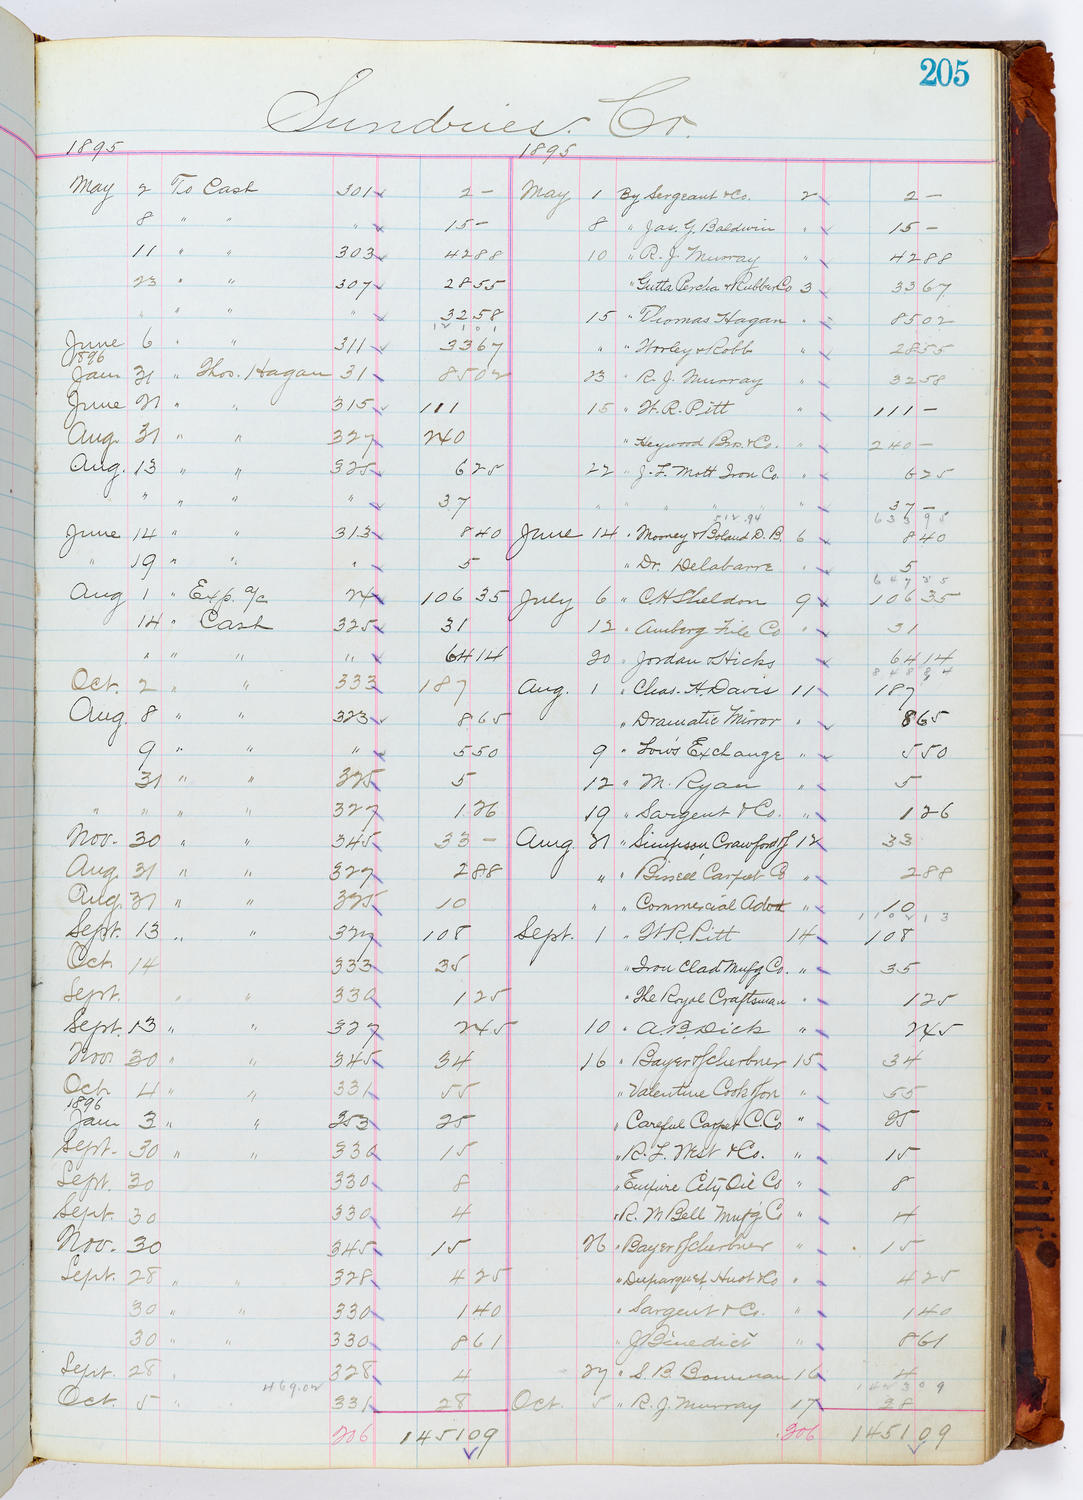 205
Sundries. Cr.
1895 1895
May 2 To Cash 301 2 – May 1 By Sergeant & Co. 2 2 –
8 " " " 15 – 8 " Jas. G. Baldwin " 15 –
11 " " 303 42 88 10 " R. J. Murray " 42 88
23 " " 307 28 55 " Gutta Percha & Rubber Co 3 33 67
" " " " 32 58 15 " Thomas Hagan " 85 02
12101
June 6 " " 311 33 67 " " Worley & Robb " 28 55
1896
Jan 31 " Thos. Hagan 31 85 02 23 " R. J. Murray " 32 58
June 21 " " 315 111 15 " W. R. Pitt " 111 –
Aug. 31 " " 327 240 " Heywood Bros. & Co. " 240 –
Aug. 13 " " 325 6 25 22 " J. L. Mott Iron Co. " 6 25
" " " " 37 " " " " " " 37 –
512.94 633 95
June 14 " " 313 8 40 June 14 " Mooney & Boland D. B. 6 8 40
" 19 " " " 5 " Dr. Delabarre " 5
647 35
Aug 1 " Exp. a/c 24 106 35 July 6 " C H Sheldon 9 106 35
14 " Cash 325 31 12 " Amberg File Co " 31
" " " " 64 14 20 " Jordan & Hicks 64 14
848 84
Oct. 2 " " 333 187 Aug. 1 " Chas. H. Davis 11 187
Aug. 8 " " 323 8 65 " Dramatic Mirror " 8 65
9 " " " 5 50 9 " Low's Exchange " 5 50
31 " " 325 5 12 " M. Ryan " 5
" " " " 327 1 26 19 " Sargent & Co. " 1 26
Nov. 30 " " 345 33 – Aug. 21 " Simpson, Crawford & 12 33
Aug. 31 " " 327 2 88 " " Bissell Carpet Co " 2 88
Aug. 31 " " 325 10 " " Commercial Advt " 10
1102 13
Sept. 13 " " 327 108 Sept. 1 " W. R. Pitt 14 108
Oct 14 333 35 " Iron Clad Mufg Co. " 35
Sept. " " 330 1 25 " The Royal Craftsman " 1 25
Sept. 13 " " 327 2 45 10 " A. B. Dick " 2 45
Nov 30 " " 345 34 16 " Bayer & Scherbner 15 34
Oct 4 " " 331 55 " Valentine Cook & Son " 55
1896
Jan 3 " " 353 25 " Careful Carpet C. Co " 25
Sept. 30 " " 330 15 " R. L. West & Co. " 15
Sept. 30 330 8 " Empire City Oil Co " 8
Sept. 30 330 4 " R. M Bell Mufg Co " 4
Nov. 30 345 15 26 " Bayer & Scherbner " 15
Sept. 28 " " 328 4 25 " Duparquet Huot & Co " 4 25
30 " " 330 1 40 " Sargent & Co. " 1 40
30 " " 330 8 61 " J Benedict " 8 61
Sept. 28 " 328 4 27 " S. B. Bowman 16 4
469.02 1423 09
Oct. 5 " " 331 28 Oct. 5 " R. J. Murray 17 28
206 1451 09 206 1451 09